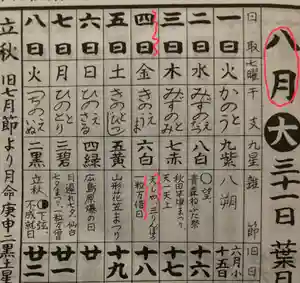 八月大三十一日葉月
日 取 七曜 干支 九星 雜節 旧日
一日 火 かのとう 九紫 八朔 六月小 十五日
二日 水 みずのえたつ 八白 十六
三日 木 みずのとみ 七赤 天一天上 十七
四日 金 きのえうま 六白 一粒万倍日 十八
五日 土 きのとひつじ 五黄 山形花笠まつり 十九
六日 日 ひのえさる 四緑 広島原爆の日 廿
七日 月 ひのととり 三碧 廿一
八日 火 つちのえいぬ 二黒 立秋 下弦、不成就日 廿二
立秋 旧七月節より月命庚申二黒土星